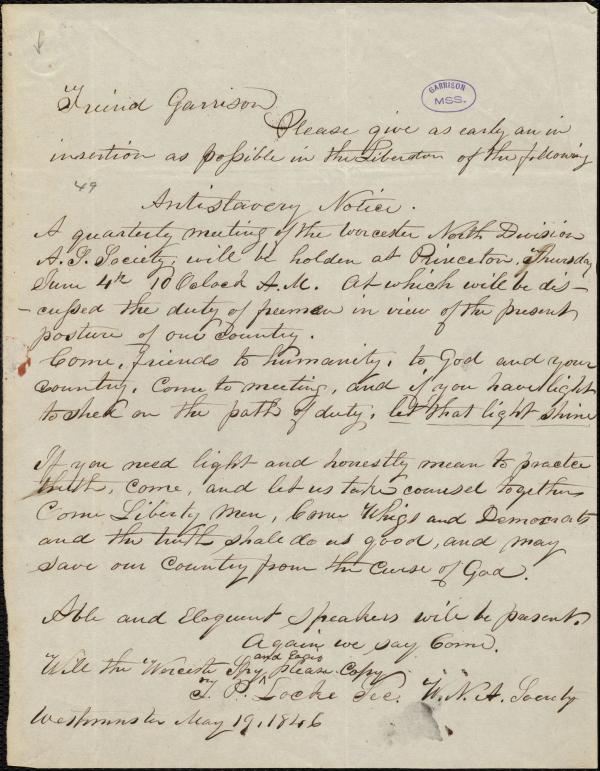 GARRISON
MSS.
Freind Garrison
Please give as early an in
insertion as possible in the Liberator of the following
49
Antislavery Notice.
A quarterly meeting of the Worcester North Division
A. S. Society, will be holden at Princeton, Thursday
June 4th 10 Oclock A.M. At which will be dis-
-cussed the duty of freemen in view of the present
posture of our country.
Come, friends to humanity, to God and your
country, come to meeting, and if you have light
to shed on the path of duty, let that light shine
If you need light and honestly mean to practice
truth, come, and let us take counsel together
Come Liberty men, Come Whigs and Democrats
and the truth shall do us good, and may
save our country from the curse of God.
Able and Eloquent speakers will be present.
Again we say Come.
Will the Worcester Spy and please copy
P. Locke Sec. W. N. A. Society
Westminster May 19, 1846